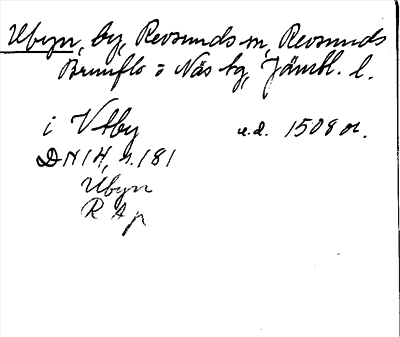 Ubyn, by, Revsunds sn, Revsunds
Brunflo o Näs tg, Jämtl. l.
i Vtby u.d. 1508 or.
DN 14, s. 181
Ubyn
R Ap